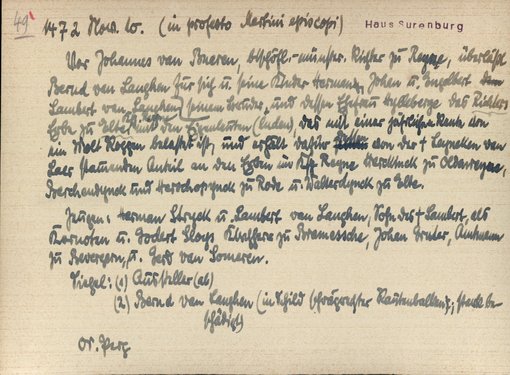 49
1472 Nov. 10. (in profesto Martini episcopi) Haus Surenburg
Vor Johannes van Boneren, bischöfl.-münster. Richter zu Reyne, überläßt
Bernd van Langhen für sich u. seine Kinder Hermann, Johan u. Engelbert dem
Lambert van Langhen, seinem Bruder, und dessen Ehefrau Hylleberge das Richters
Erbe zu Elte mit den Eigenleuten (Luden), das mit einer jährlichen Rente von
ein Molt Roggen belastet ist, und erhält dafür den von der + Lepeken van
Laer stammenden Anteil an den Erben im Ksp Reyne Werdtinck zu Oldenreyne,
Berchendynck und Herschopynck zu Rode u. Walterdynck zu Elte.
Zeugen: Herman Stryck u. Lambert van Langhen, Sohn des + Lambert, als
Kornoten u. Godert Kloys Kerkhere zu Bramessche, Johan Gruter, Amtmann
zu Revergern, u. Gerd van Someren.
Siegel: (1) Aussteller (ab)
(2) Bernd van Langhen (in Schild schrägrechter Rautenbalken; stark be-
schädigt)
Or. Perg